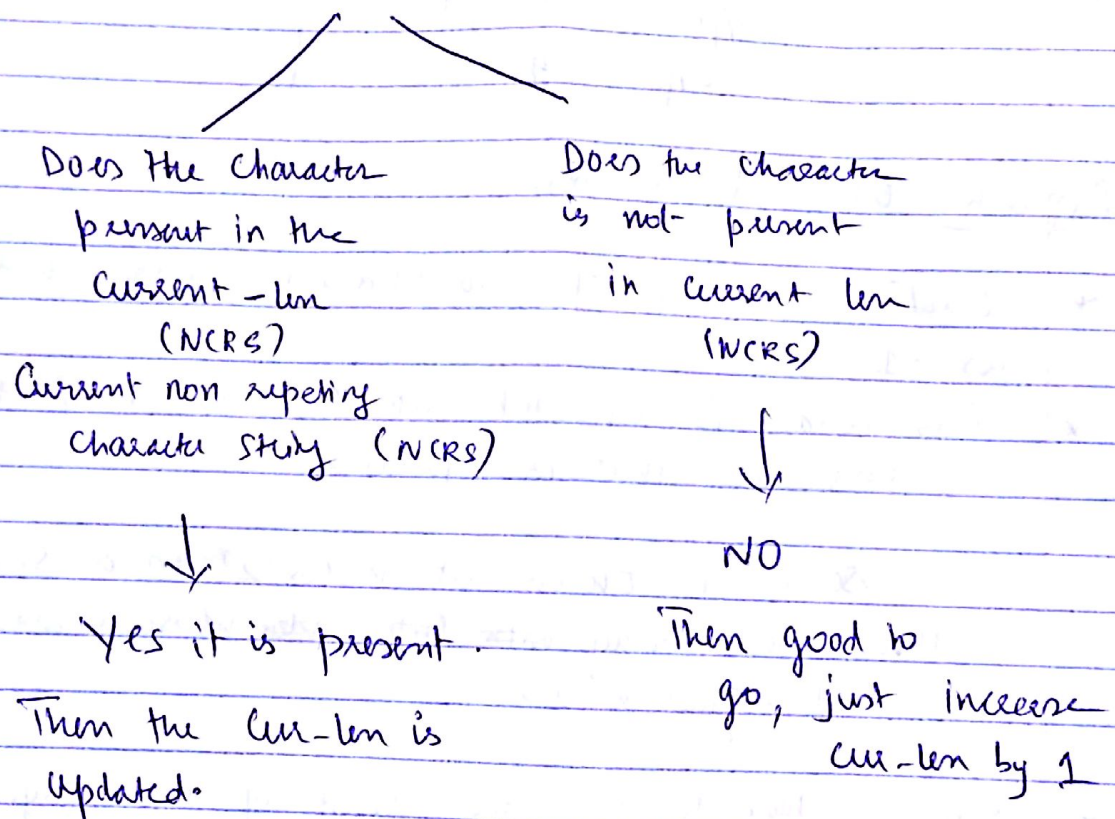 Does the Character
present in the
Current-len
(NCRS)
Current non repeting
Character String (NCRS)
Yes it is present.
Then the Cur-len is
Updated.
Does the character
is not present
in current len
(NCRS)
NO
Then good to
go, just increase
cur-len by 1